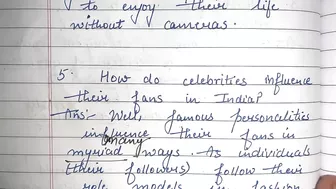 to enjoy their life
without cameras.
5. How do celebrities influence
their fans in India?
Ans:- Well, famous personalities
influence their fans in
many
myriad ways. As individuals
(their followers) follow their
role models in fashion